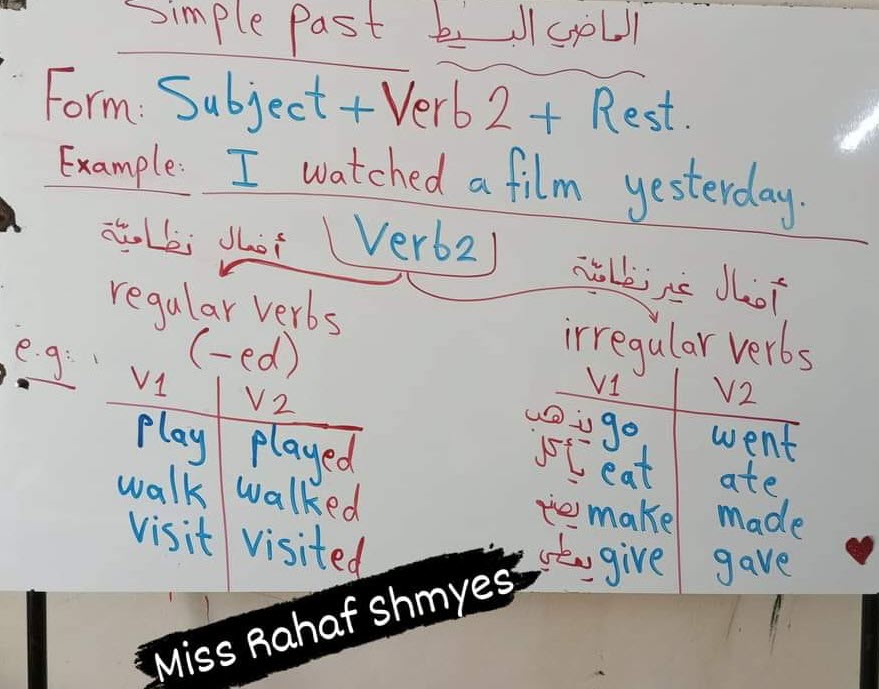 Simple past الماضي البسيط
Form: Subject + Verb 2 + Rest.
Example: I watched a film yesterday.
Verb2
أفعال نظاميّة
regular verbs
(-ed)
e.g:
V1 V2
play played
walk walked
visit visited
أفعال غير نظاميّة
irregular verbs
V1 V2
يذهب go went
يأكل eat ate
يصنع make made
يعطي give gave
Miss Rahaf Shmyes